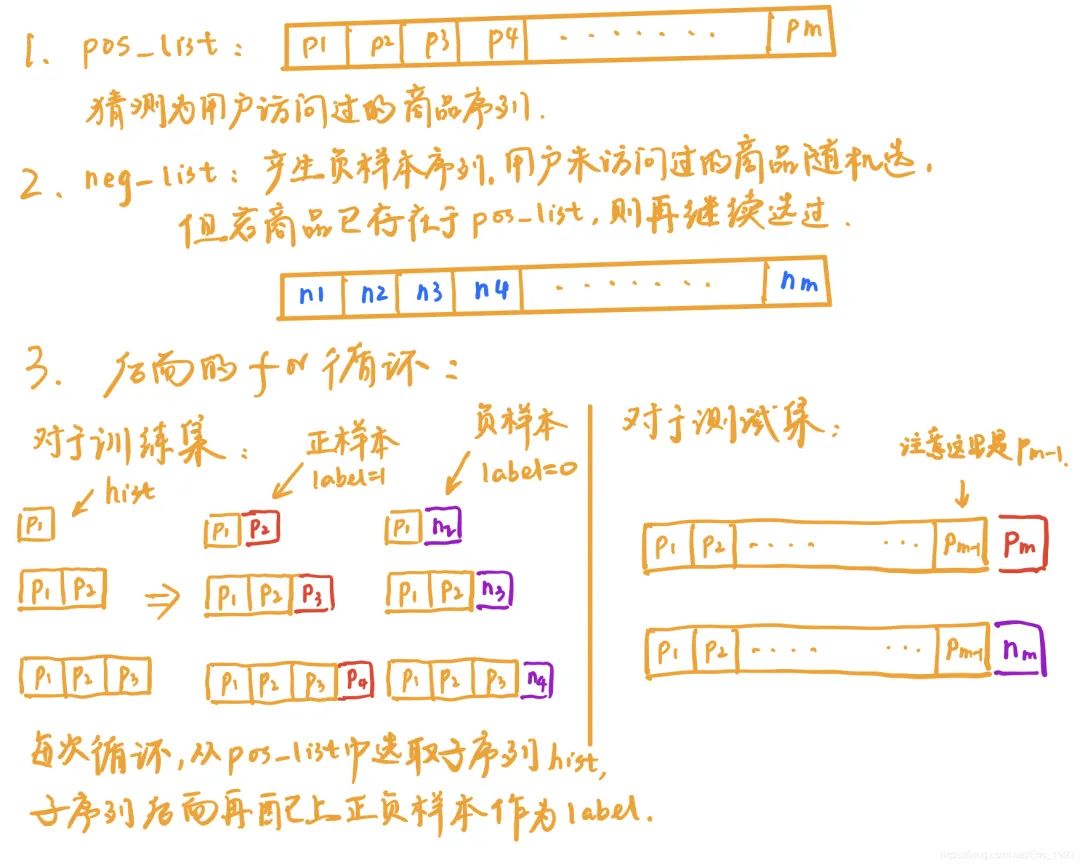 1. pos_list: p1 p2 p3 p4 ······· pm
猜测为用户访问过的商品序列.
2. neg_list: 产生负样本序列.用户未访问过的商品随机选.
但若商品已存在于pos_list,则再继续选过.
n1 n2 n3 n4 ······· nm
3. 后面的for循环:
对于训练集:
hist
正样本
label=1
负样本
label=0
p1
p1 p2
p1 n2
p1 p2
⇒
p1 p2 p3
p1 p2 n3
p1 p2 p3
p1 p2 p3 p4
p1 p2 p3 n4
每次循环,从pos_list中选取子序列hist,
子序列后面再配上正负样本作为label.
对于测试集:
注意这里是pm-1.
p1 p2 ···· ··· pm-1 pm
p1 p2 ···· ··· pm-1 nm